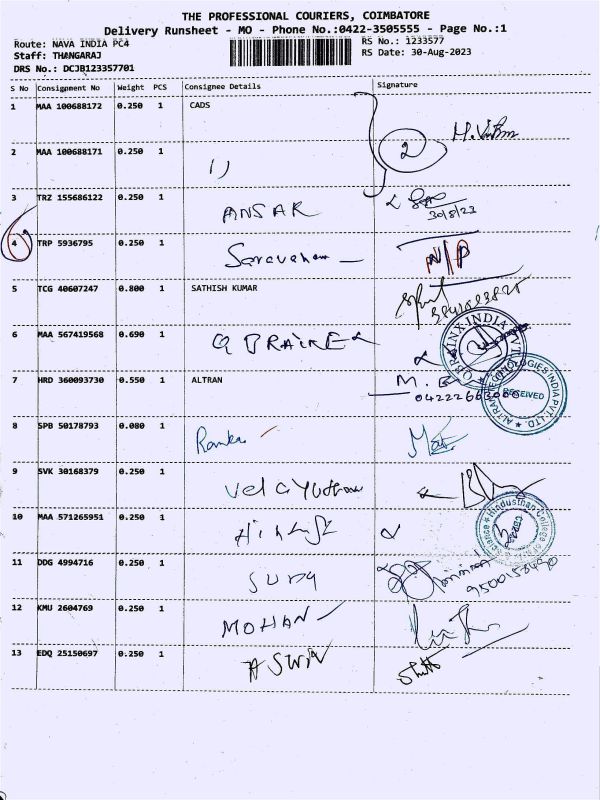 THE PROFESSIONAL COURIERS, COIMBATORE
Delivery Runsheet - MO - Phone No.:0422-3505555 - Page No.:1
Route: NAVA INDIA PC4
RS No.: 1233577
Staff: THANGARAJ
RS Date: 30-Aug-2023
DRS No.: DCJB123357701
S No Consignment No Weight PCS Consignee Details Signature
1 MAA 100688172 0.250 1 CADS
2 M.
2 MAA 100688171 0.250 1
3 TRZ 155686122 0.250 1 ANSAR
30/8/23
4 TRP 5936795 0.250 1 Saravanan N/P
5 TCG 40607247 0.800 1 SATHISH KUMAR
6 MAA 567419568 0.690 1
INDIA PVT
7 HRD 360093730 0.550 1 ALTRAN M.
04222663000
ALTRAN TECHNOLOGIES INDIA PVT. LTD.
RECEIVED
8 SPB 50178793 0.080 1
9 SVK 30168379 0.250 1
10 MAA 571265951 0.250 1
Hindusthan College of
11 DDG 4994716 0.250 1
9500153490
12 KMU 2604769 0.250 1 MOHAN
13 EDQ 25150697 0.250 1 ASWIN